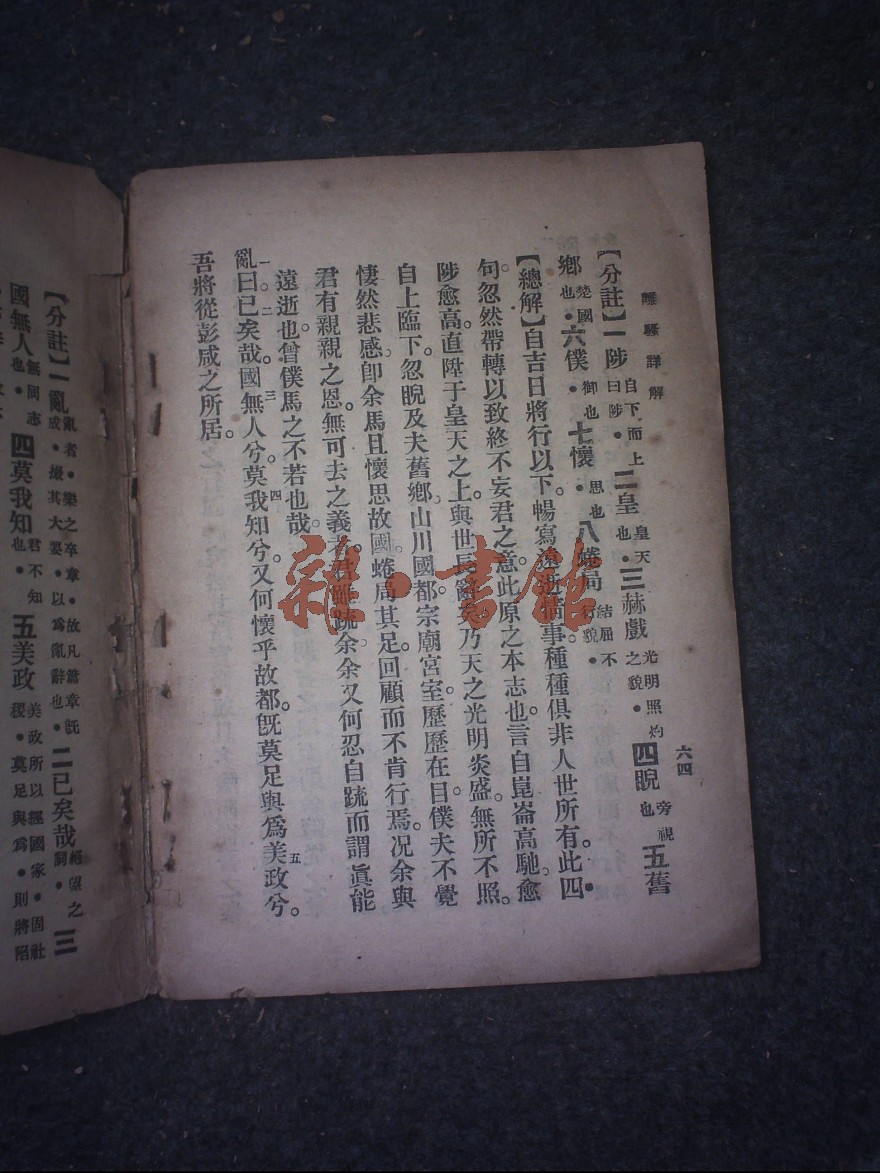 離騷詳解
六四
【分註】一陟 自下而上曰陟 • 二皇 皇天也 • 三赫戲 光明照灼之貌 • 四睨 旁視也 • 五舊
鄉 楚國也 • 六僕 御也 • 七懷 思也 • 八蜷局 結屈不行貌 •
【總解】自吉日將行以下。暢寫遠逝情事種種俱非人世所有。此四
句。忽然帶轉以致終不妄君之意。此原之本志也。言自崑崙高馳。愈
陟愈高。直陞于皇天之上。與世長亂矣。乃天之光明炎盛。無所不照。
自上臨下。忽睨及夫舊鄉。山川國都。宗廟宮室。歷歷在目。僕夫不覺
悽然悲感。卽余馬且懷思故國。蜷局其足。回顧而不肯行焉。况余與
君有親親之恩。無可去之義者。君雖疏余。余又何忍自疏。而謂眞能
遠逝也。曾僕馬之不若也哉。
亂一曰。已二矣哉。國三無人兮。莫四我知兮。又何懷乎故都。旣莫足與爲美五政兮。
吾將從彭咸之所居。
【分註】一亂 亂者•樂之卒章•故凡篇章旣成•撮其大要•以爲亂辭也• 二已矣哉 絕望之詞• 三
國無人 無同志也• 四莫我知 君不知也• 五美政 美政所以經國家•固社稷•莫足與爲•則將
雜•書館